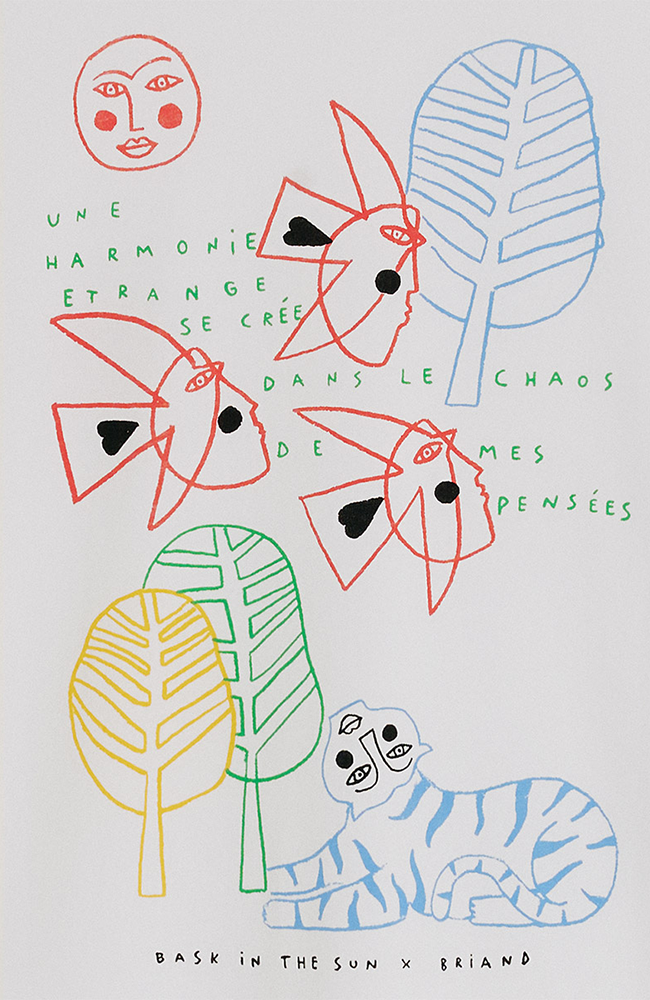 UNE
HARMONiE
ETRANGE
SE CRÉE
DANS LE CHAOS
DE MES
PENSÉES
BASK iN THE SUN x BRiAND